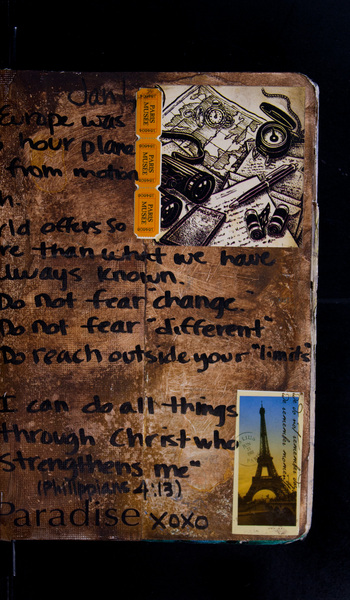 Jan
Europe was
hour plane
from motion
h.
rld offers so
re than what we have
always known.
Do not fear "change."
Do not fear "different"
Do reach outside your "limits"
I can do all things
through Christ who
strengthens me"
(Philippians 4:13)
Paradise xoxo
PARIS MUSÉE
PARIS MUSÉE
PARIS MUSÉE